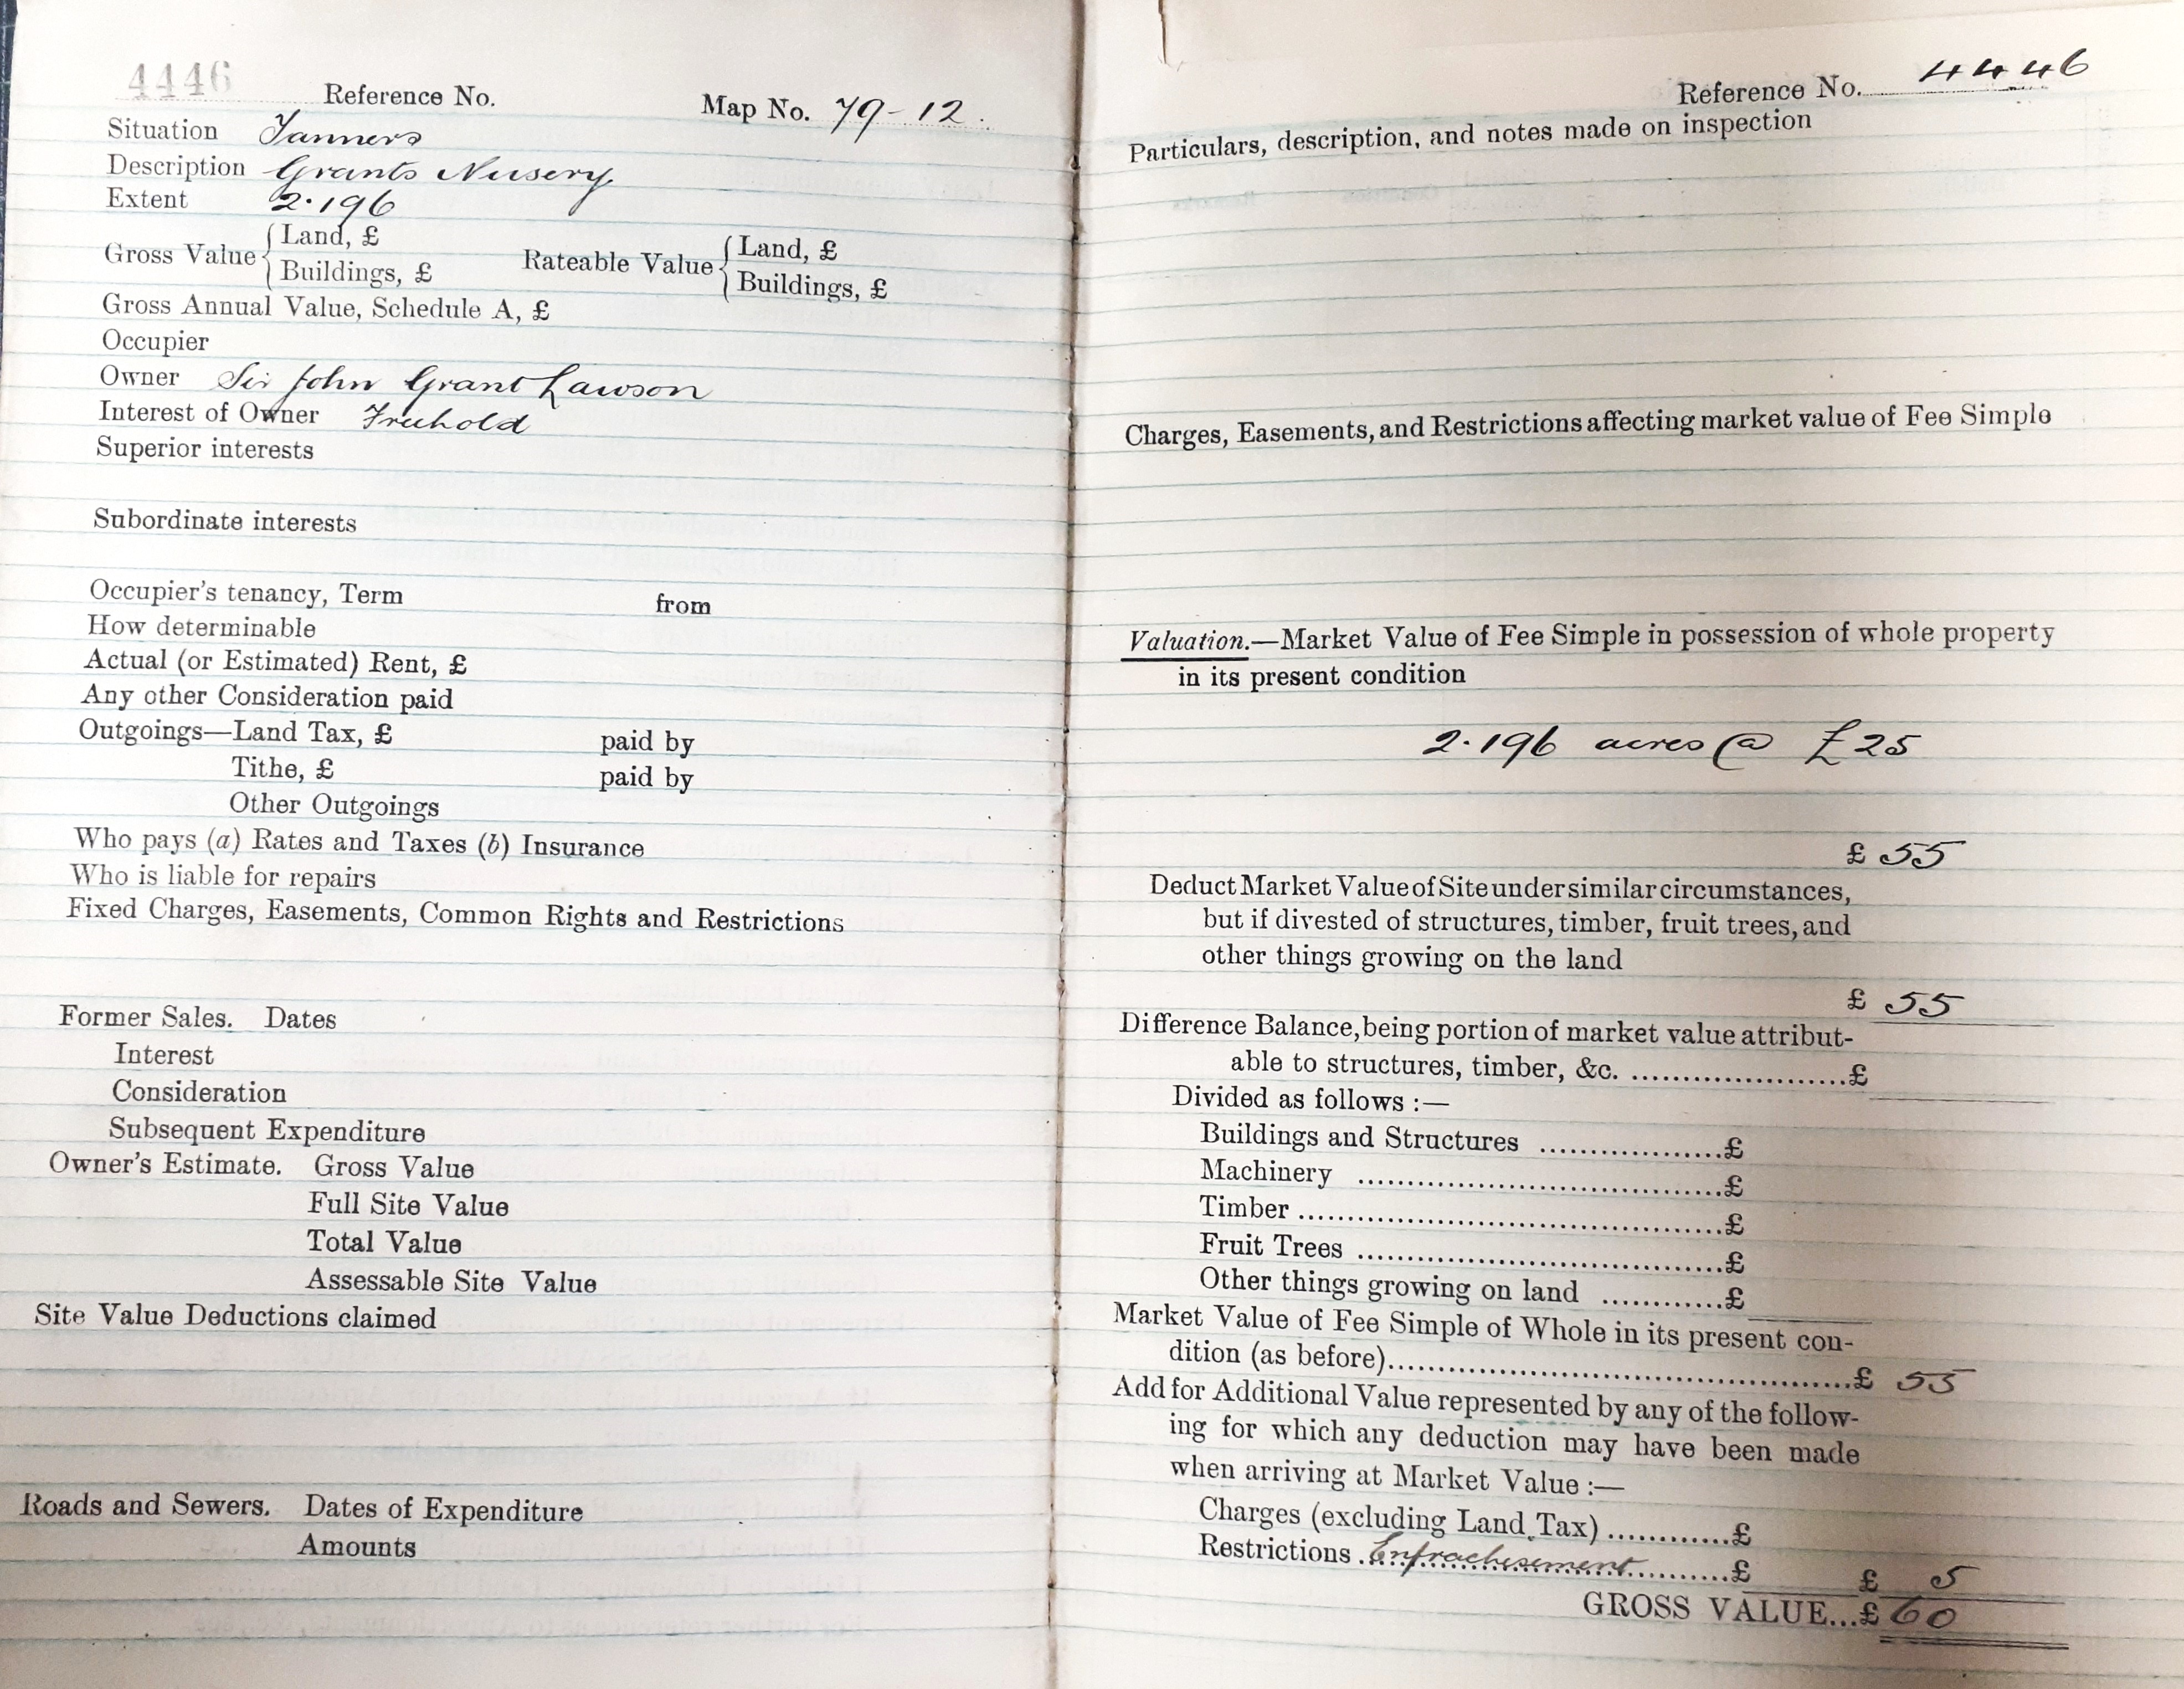 4446 Reference No. Map No. 79-12.
Situation Tanners
Description Grants Nusery
Extent 2.196
Gross Value { Land, £ Rateable Value { Land, £
Buildings, £ Buildings, £
Gross Annual Value, Schedule A, £
Occupier
Owner Sir John Grant Lawson
Interest of Owner Freehold
Superior interests
Subordinate interests
Occupier's tenancy, Term from
How determinable
Actual (or Estimated) Rent, £
Any other Consideration paid
Outgoings—Land Tax, £ paid by
Tithe, £ paid by
Other Outgoings
Who pays (a) Rates and Taxes (b) Insurance
Who is liable for repairs
Fixed Charges, Easements, Common Rights and Restrictions
Former Sales. Dates
Interest
Consideration
Subsequent Expenditure
Owner's Estimate. Gross Value
Full Site Value
Total Value
Assessable Site Value
Site Value Deductions claimed
Roads and Sewers. Dates of Expenditure
Amounts
Reference No. 4446
Particulars, description, and notes made on inspection
Charges, Easements, and Restrictions affecting market value of Fee Simple
Valuation.—Market Value of Fee Simple in possession of whole property
in its present condition
2.196 acres @ £25
£ 55
Deduct Market Value of Site under similar circumstances,
but if divested of structures, timber, fruit trees, and
other things growing on the land
£ 55
Difference Balance, being portion of market value attribut-
able to structures, timber, &c. ......................£
Divided as follows :—
Buildings and Structures ..................£
Machinery .....................................£
Timber ...........................................£
Fruit Trees .....................................£
Other things growing on land ............£
Market Value of Fee Simple of Whole in its present con-
dition (as before)..............................................£ 55
Add for Additional Value represented by any of the follow-
ing for which any deduction may have been made
when arriving at Market Value :—
Charges (excluding Land Tax) ............£
Restrictions Enfrachisement............£ £ 5
GROSS VALUE...£ 60